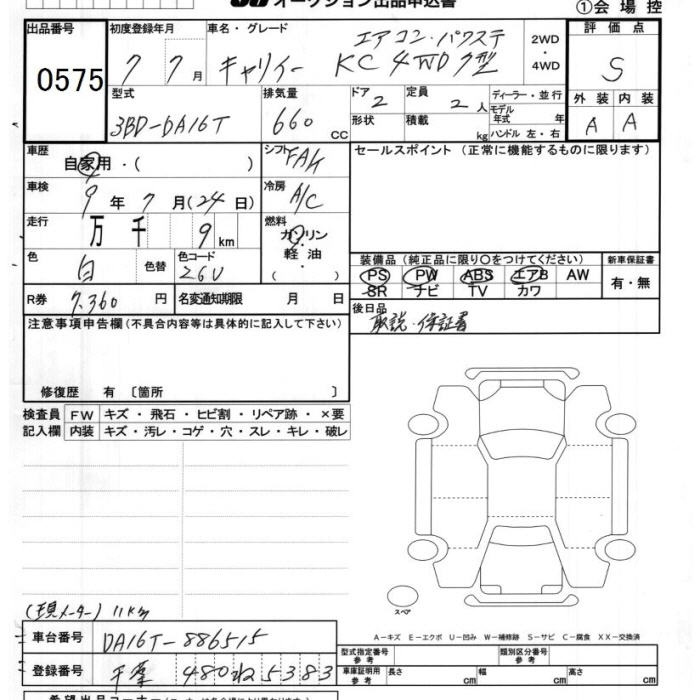 オークション出品申込書
①会場控
出品番号
0575
初度登録年月
7 7月
車名・グレード
エアコン・パワステ
キャリイー KC 4WD 7型
2WD
・
4WD
評価点
S
型式
3BD-DA16T
排気量
660 CC
ドア
2
形状
定員
2人
積載
kg
ディーラー・並行
モデル
年式 年
ハンドル 左・右
外装 内装
A A
車歴
自家用・( )
シフト
FA4
セールスポイント (正常に機能するものに限ります)
車検
9年 7月(24日)
冷房
A/C
走行
万 千 9km
燃料
ガソリン
軽油
色
白
色替
色コード
26U
装備品(純正品に限り○をつけてください)
PS PW ABS エアB AW
SR ナビ TV カワ
新車保証書
有・無
R券
7,360円
名変通知期限 月 日
後日品
取説・保証書
注意事項申告欄(不具合内容等は具体的に記入して下さい)
修復歴 有 〔箇所 〕
検査員
記入欄
FW キズ・飛石・ヒビ割・リペア跡・×要
内装 キズ・汚レ・コゲ・穴・スレ・キレ・破レ
スペア
(現メーター) 11km
A−キズ E−エクボ U−凹み W−補修跡 S−サビ C−腐食 XX−交換済
車台番号
DA16T-886515
登録番号
千葉 480 ね 5383
型式指定番号
参考
類別区分番号
参考
車庫証明用
参考
長さ cm
幅 cm
高さ cm